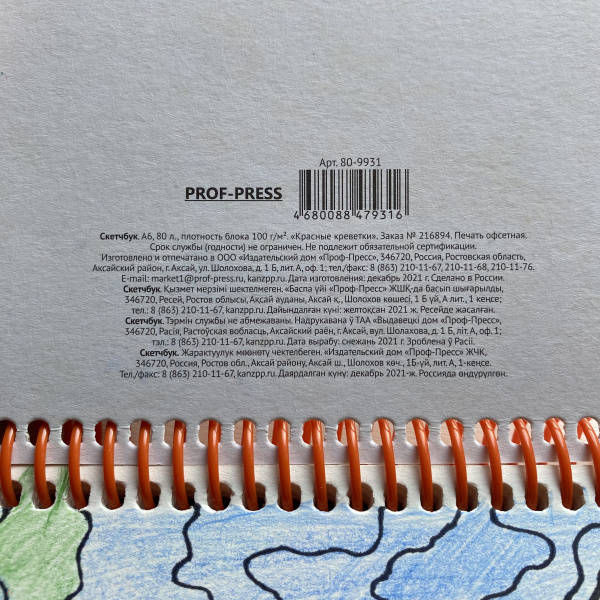 Арт. 80-9931
PROF-PRESS
4 680088 479316
Скетчбук. А6, 80 л., плотность блока 100 г/м². «Красные креветки». Заказ № 216894. Печать офсетная.
Срок службы (годности) не ограничен. Не подлежит обязательной сертификации.
Изготовлено и отпечатано в ООО «Издательский дом «Проф-Пресс», 346720, Россия, Ростовская область,
Аксайский район, г. Аксай, ул. Шолохова, д. 1 Б, лит. А, оф. 1; тел./факс: 8 (863) 210-11-67, 210-11-68, 210-11-76.
E-mail: market1@prof-press.ru, kanzpp.ru. Дата изготовления: декабрь 2021 г. Сделано в России.
Скетчбук. Қызмет мерзімі шектелмеген. «Баспа үйі «Проф-Пресс» ЖШҚ-да басып шығарылды,
346720, Ресей, Ростов облысы, Ақсай ауданы, Ақсай қ., Шолохов көшесі, 1 Б үй, А лит., 1 кеңсе;
тел.: 8 (863) 210-11-67, kanzpp.ru. Дайындалған күні: желтоқсан 2021 ж. Ресейде жасалған.
Скетчбук. Тэрмін службы не абмежаваны. Надрукавана ў ТАА «Выдавецкі дом «Проф-Пресс»,
346720, Расія, Растоўская вобласць, Аксайскі раён, г. Аксай, вул. Шолахава, д. 1 Б, літ. А, оф. 1;
тэл.: 8 (863) 210-11-67, kanzpp.ru. Дата вырабу: снежань 2021 г. Зроблена ў Расіі.
Скетчбук. Жарактуулук мөөнөтү чектелбеген. «Издательский дом «Проф-Пресс» ЖЧК,
346720, Россия, Ростов обл., Аксай району, Аксай ш., Шолохов көч., 1Б-үй, лит. А, 1-кеңсе.
Тел./факс: 8 (863) 210-11-67, kanzpp.ru. Даярдалган күнү: декабрь 2021-ж. Россияда өндүрүлгөн.